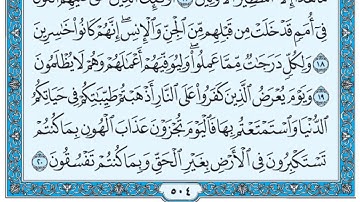 فِىٓ أُمَمٍ قَدْ خَلَتْ مِن قَبْلِهِم مِّنَ ٱلْجِنِّ وَٱلْإِنسِ ۖ إِنَّهُمْ كَانُوا۟ خَٰسِرِينَ
١٨ وَلِكُلٍّ دَرَجَٰتٌ مِّمَّا عَمِلُوا۟ ۖ وَلِيُوَفِّيَهُمْ أَعْمَٰلَهُمْ وَهُمْ لَا يُظْلَمُونَ
١٩ وَيَوْمَ يُعْرَضُ ٱلَّذِينَ كَفَرُوا۟ عَلَى ٱلنَّارِ أَذْهَبْتُمْ طَيِّبَٰتِكُمْ فِى حَيَاتِكُمُ
ٱلدُّنْيَا وَٱسْتَمْتَعْتُم بِهَا فَٱلْيَوْمَ تُجْزَوْنَ عَذَابَ ٱلْهُونِ بِمَا كُنتُمْ
تَسْتَكْبِرُونَ فِى ٱلْأَرْضِ بِغَيْرِ ٱلْحَقِّ وَبِمَا كُنتُمْ تَفْسُقُونَ ٢٠
٥٠٤